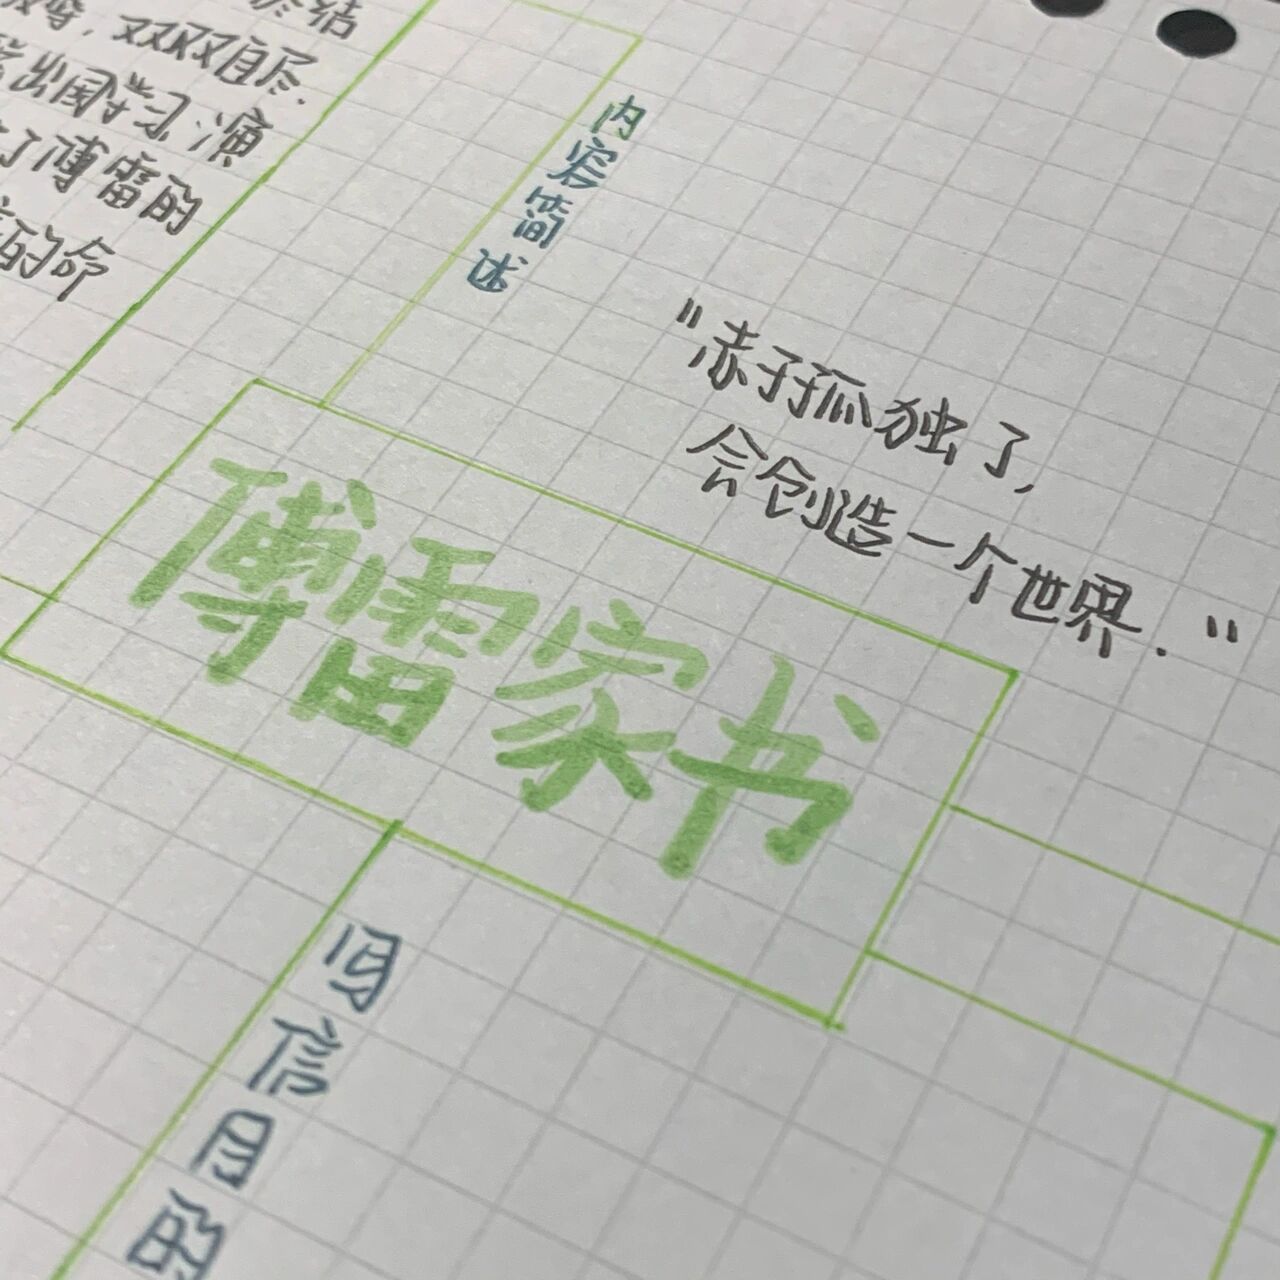 终结
双双自尽.
出国学习、演
了傅雷的
的命
内容简述
"赤子孤独了,
会创造一个世界."
傅雷家书
写信目的